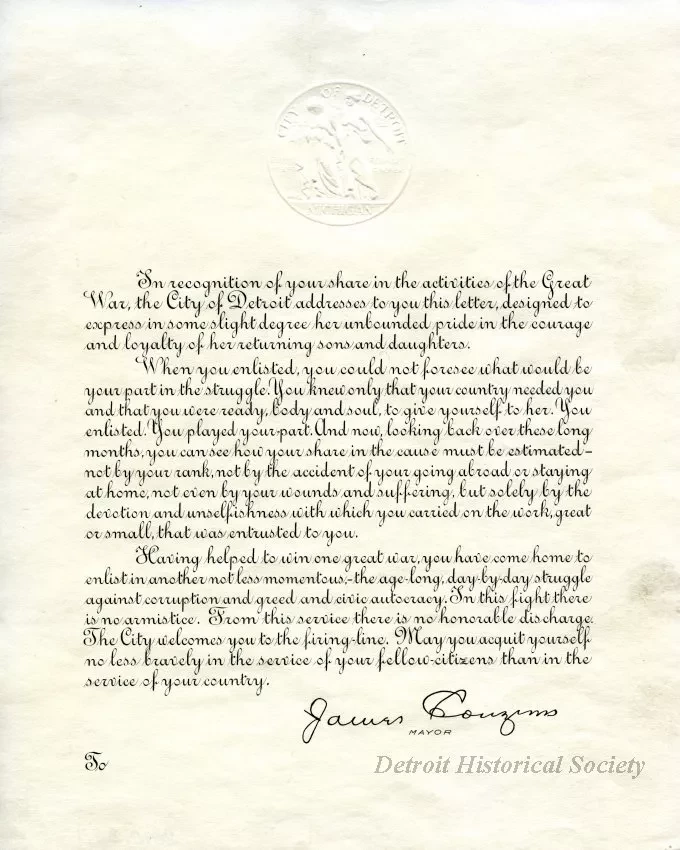 CITY OF DETROIT
MICHIGAN
In recognition of your share in the activities of the Great
War, the City of Detroit addresses to you this letter, designed to
express in some slight degree her unbounded pride in the courage
and loyalty of her returning sons and daughters.
When you enlisted, you could not foresee what would be
your part in the struggle. You knew only that your country needed you
and that you were ready, body and soul, to give yourself to her. You
enlisted. You played your part. And now, looking back over these long
months, you can see how your share in the cause must be estimated—
not by your rank, not by the accident of your going abroad or staying
at home, not even by your wounds and suffering, but solely by the
devotion and unselfishness with which you carried on the work, great
or small, that was entrusted to you.
Having helped to win one great war, you have come home to
enlist in another not less momentous,—the age-long, day-by-day struggle
against corruption and greed and civic autocracy. In this fight there
is no armistice. From this service there is no honorable discharge.
The City welcomes you to the firing-line. May you acquit yourself
no less bravely in the service of your fellow-citizens than in the
service of your country.
James Couzens
MAYOR
To
Detroit Historical Society